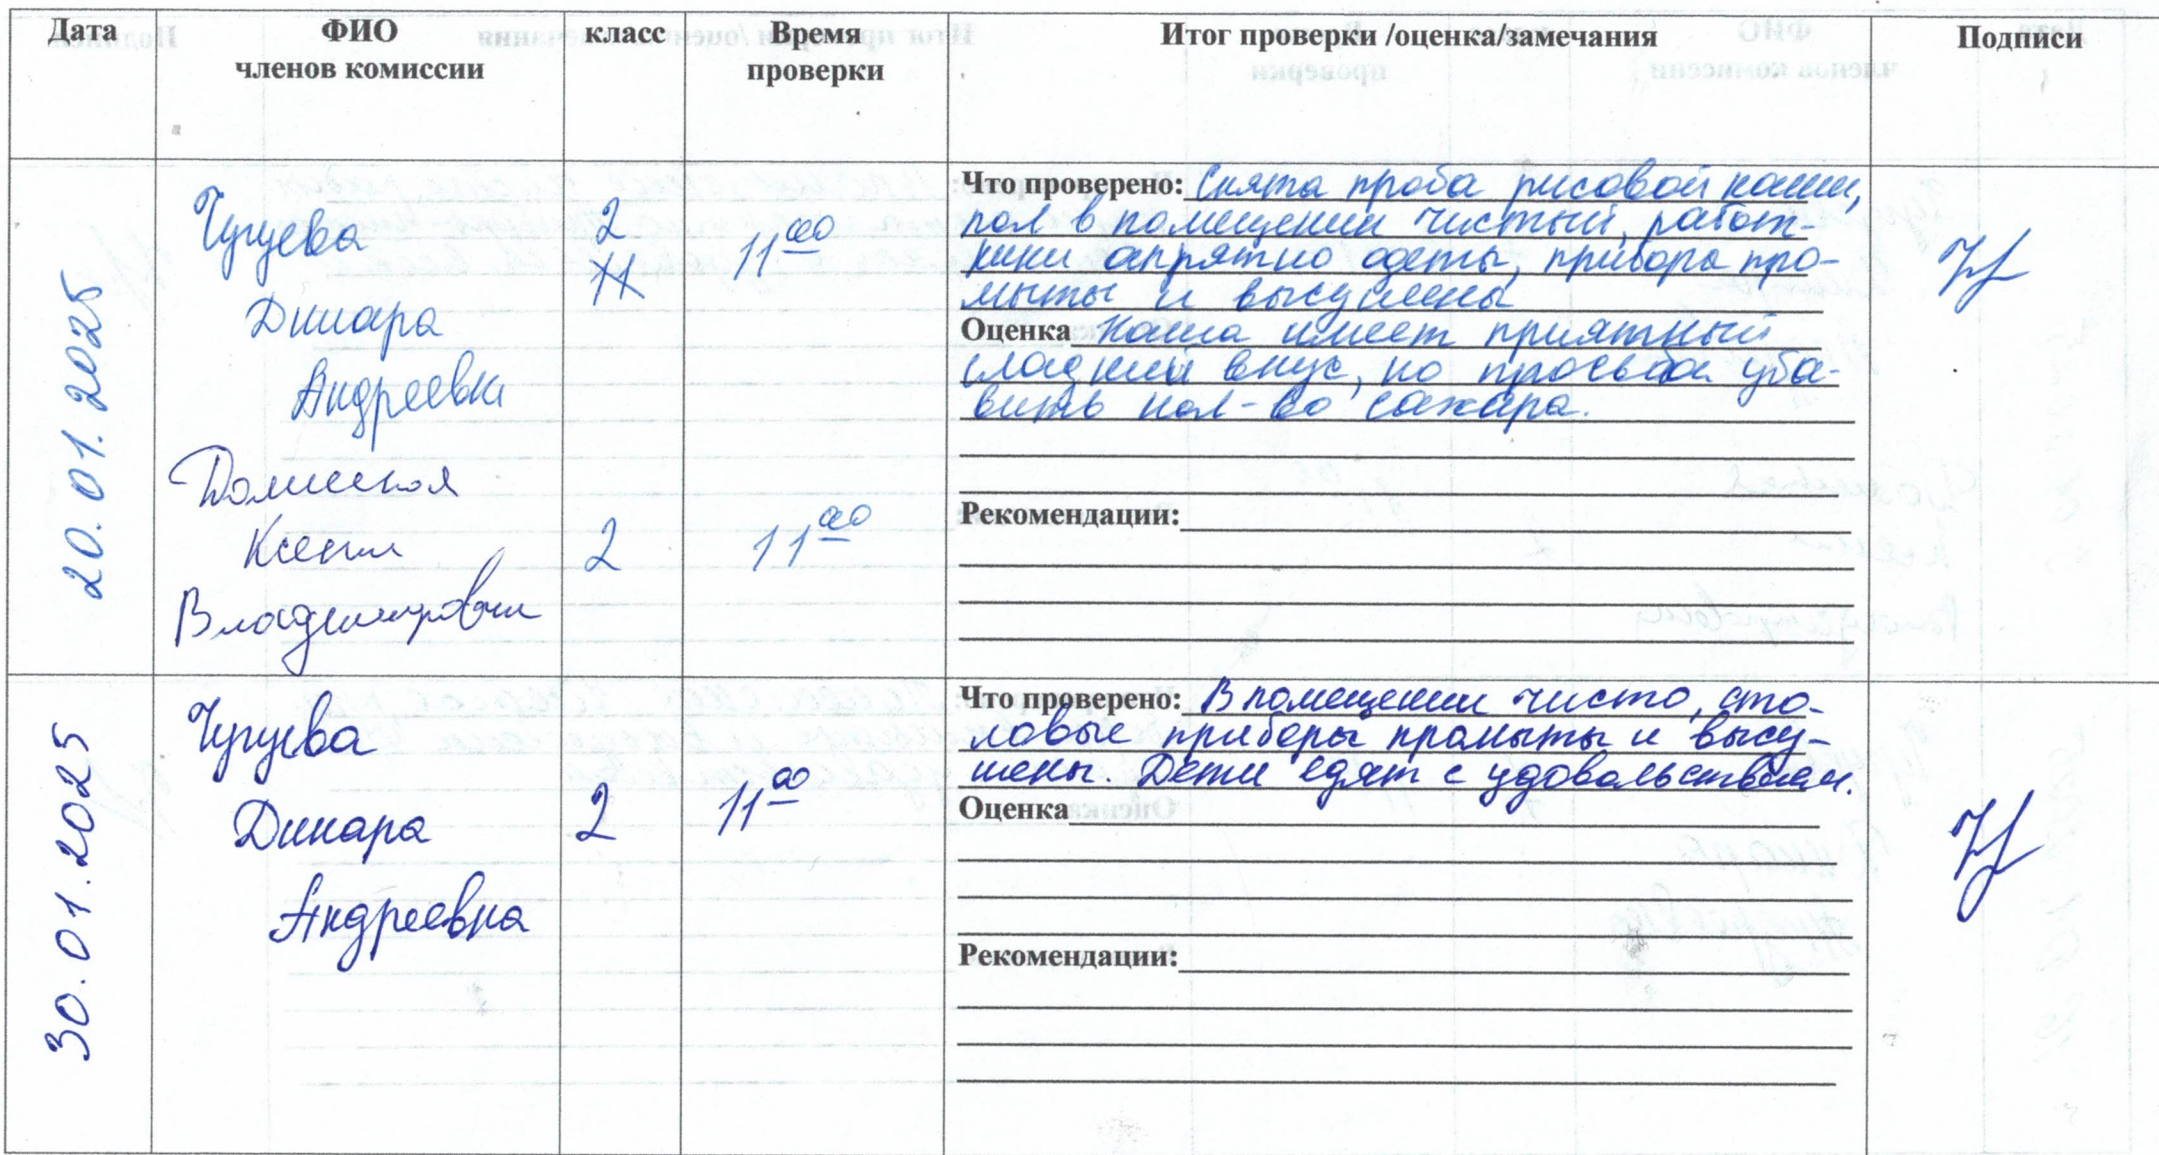 Дата ФИО класс Время Итог проверки /оценка/замечания Подписи
членов комиссии проверки
20.01.2025
Чугуева 2 11⁰⁰
Динара
Андреевна
Ксения 2 11⁰⁰
Владимировна
Что проверено: Снята проба рисовой каши,
пол в помещении чистый, работ-
ники опрятно одеты, прибора про-
мыты и высушены
Оценка Каша имеет приятный
сладкий вкус, но просьба уба-
вить кол-во сахара.
Рекомендации:
30.01.2025
Чугуева
Динара 2 11⁰⁰
Андреевна
Что проверено: В помещении чисто, сто-
ловые приборы промыты и высу-
шены. Дети едят с удовольствием.
Оценка
Рекомендации: